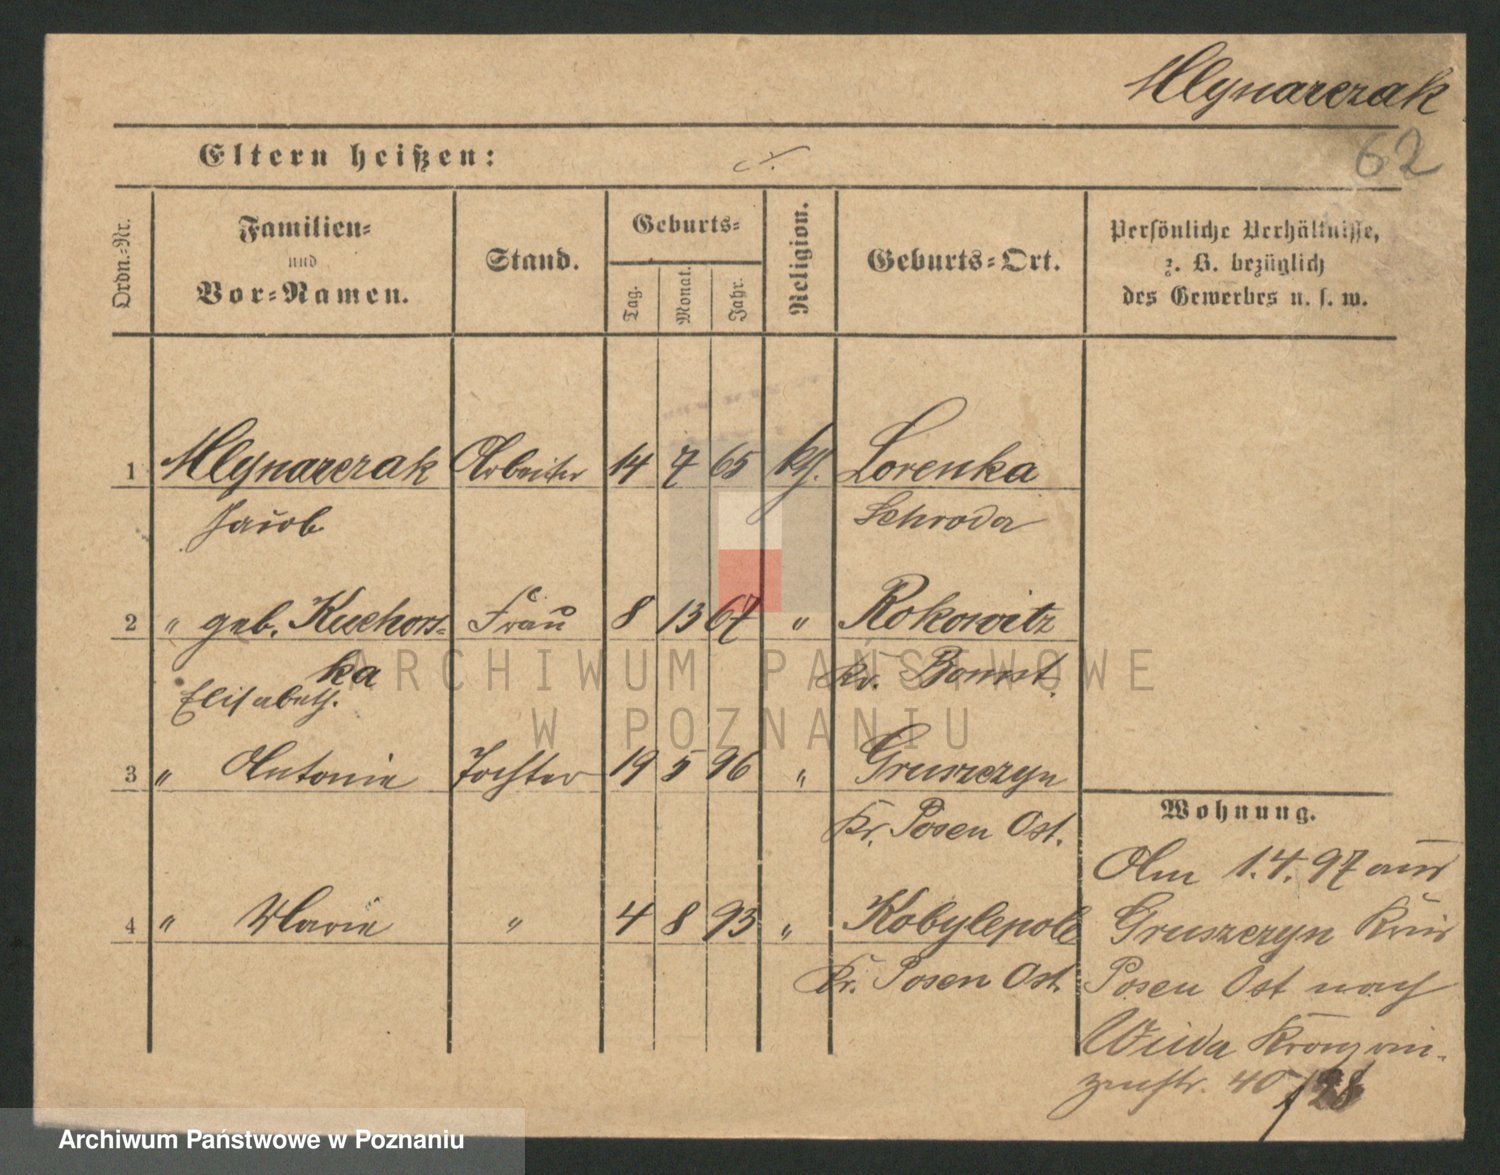 Mlynarczak
62
Eltern heißen:
Ordn.-Nr.
Familien-
und
Vor-Namen.
Stand.
Geburts-
Tag.
Monat.
Jahr.
Religion.
Geburts-Ort.
Persönliche Verhältnisse,
z. B. bezüglich
des Gewerbes u. s. w.
1 Mlynarczak Arbeiter 14 7 65 kth. Lorenka
Jacob Schroda
2 " geb. Kuchors- Frau 8 13 67 " Rokowitz
ka Kr. Bomst.
Elisabeth.
3 " Antonie Tochter 19 5 96 " Gruszczyn
Kr. Posen Ost.
4 " Marie " 4 8 93 " Kobylepole
Kr. Posen Ost.
Wohnung.
Am 1.4.97 aus
Gruszczyn Kreis
Posen Ost nach
Wilda Kronprin-
zenstr. 40/128
ARCHIWUM PAŃSTWOWE
W POZNANIU
Archiwum Państwowe w Poznaniu